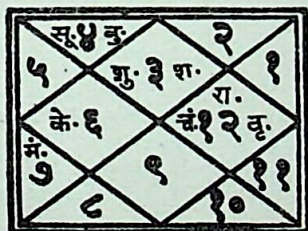 सू. ४ बु. २
५ शु. ३ श. १
रा.
के. ६ चं. १२ वृ.
मं.
७ ९ ११
८ १०